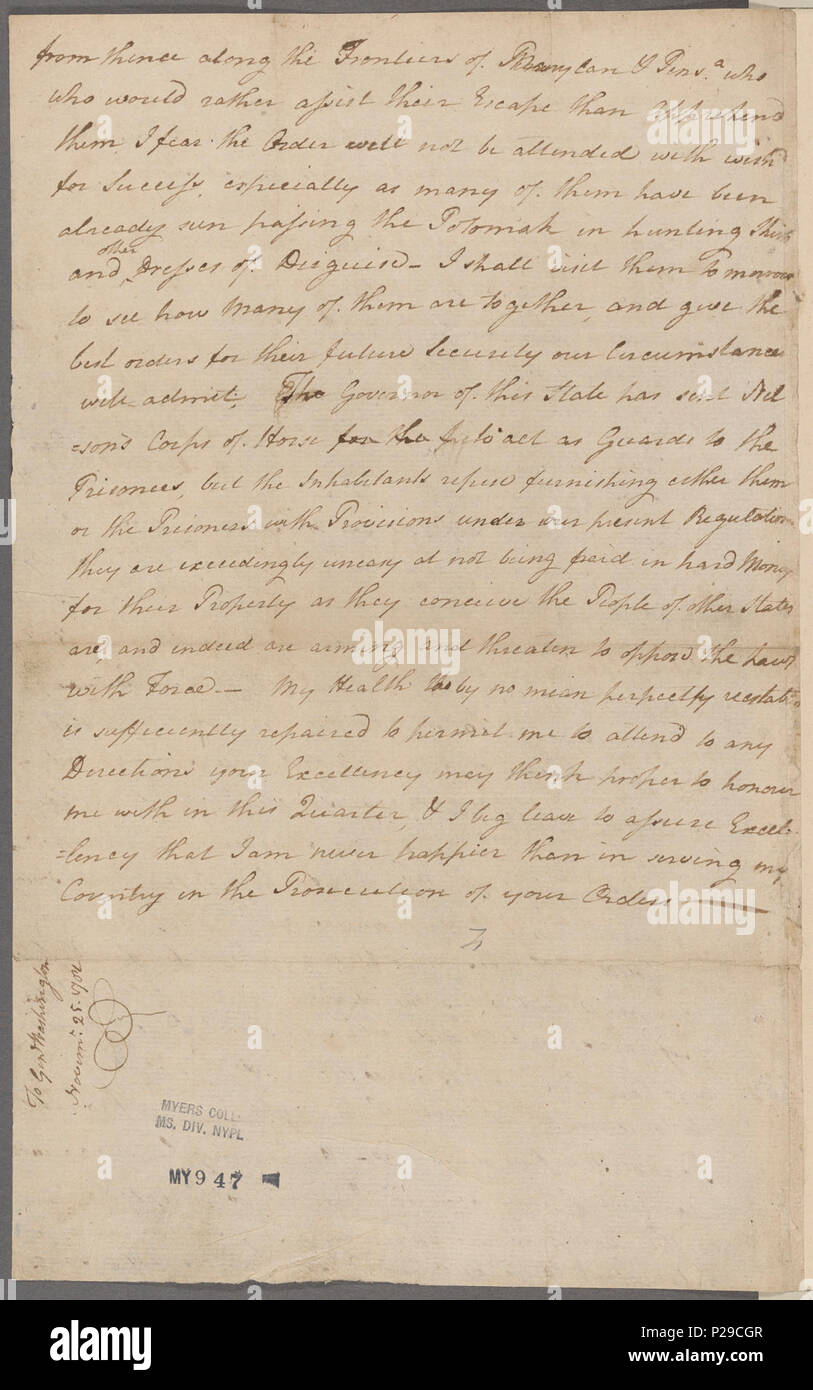 from thence along the Frontiers of Marylan & Pens.a who
who would rather assist their Escape than Apprehend
them, I fear the Order will not be attended with wish'd
for Success, especially as many of them have been
already seen passing the Potomak in hunting Shirts
other
and Dresses of Disguise - I shall visit them tomorrow
to see how many of them are together, and give the
best orders for their future Security our Circumstances
will admit, The Governor of this State has sent Nel
=son's Corps of Horse for the to act as Guards to the
Prisoners, but the Inhabitants refuse furnishing either them
or the Prisoners with Provisions under our present Regulations
they are exceedingly uneasy at not being paid in hard Money
for their Property as they conceive the People of other States
are, and indeed are arming and threaten to oppose the Laws
with Force. - My Health tho by no mean perfectly reestab
is sufficiently repaired to permit me to attend to any
Directions your Excellency may think proper to honour
me with in this Quarter, & I beg leave to assure Excel-
=lency that I am never happier than in serving my
Country in the Prosecution of your Orders
To Genl Washington
Novemr. 25. 1781
MYERS COLL.
MS. DIV. NYPL
MY 947
alamy
alamy
Image ID: P29CGR
www.alamy.com